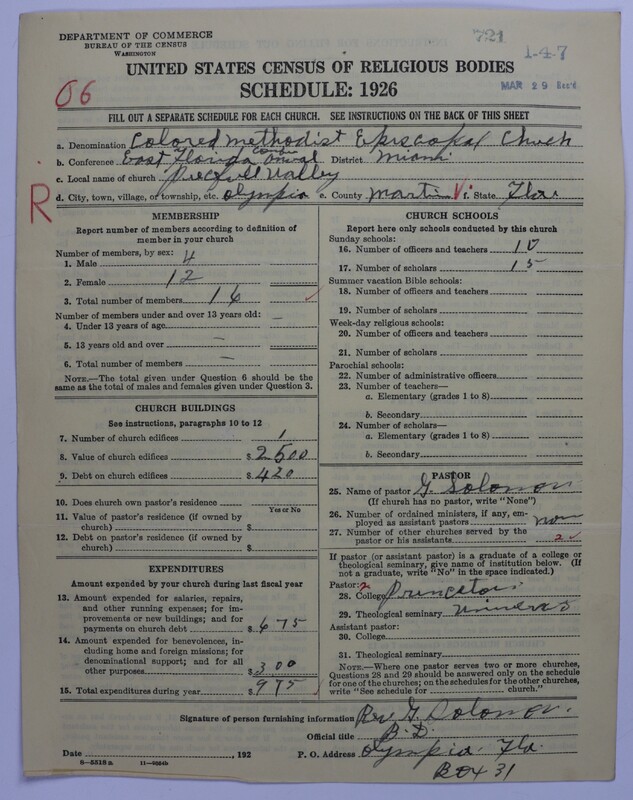 DEPARTMENT OF COMMERCE
BUREAU OF THE CENSUS
WASHINGTON
721
1-4-7
MAR 29 Rec'd
UNITED STATES CENSUS OF RELIGIOUS BODIES
SCHEDULE: 1926
06
FILL OUT A SEPARATE SCHEDULE FOR EACH CHURCH. SEE INSTRUCTIONS ON THE BACK OF THIS SHEET
a. Denomination Colored Methodist Episcopal Church
b. Conference East Florida District Miami
c. Local name of church Valley
R
d. City, town, village, or township, etc. Olympia e. County Martin f. State Fla
MEMBERSHIP
Report number of members according to definition of
member in your church
Number of members, by sex:
1. Male 4
2. Female 12
3. Total number of members 16
Number of members under and over 13 years old:
4. Under 13 years of age —
5. 13 years old and over —
6. Total number of members —
NOTE.—The total given under Question 6 should be
the same as the total of males and females given under Question 3.
CHURCH BUILDINGS
See instructions, paragraphs 10 to 12
7. Number of church edifices 1
8. Value of church edifices $ 2500
9. Debt on church edifices $ 420
10. Does church own pastor's residence
Yes or No
11. Value of pastor's residence (if owned by
church) $
12. Debt on pastor's residence (if owned by
church) $
EXPENDITURES
Amount expended by your church during last fiscal year
13. Amount expended for salaries, repairs,
and other running expenses; for im-
provements or new buildings; and for
payments on church debt $ 675
14. Amount expended for benevolences, in-
cluding home and foreign missions; for
denominational support; and for all
other purposes $ 300
15. Total expenditures during year $ 975
CHURCH SCHOOLS
Report here only schools conducted by this church
Sunday schools:
16. Number of officers and teachers 10
17. Number of scholars 15
Summer vacation Bible schools:
18. Number of officers and teachers
19. Number of scholars
Week-day religious schools:
20. Number of officers and teachers
21. Number of scholars
Parochial schools:
22. Number of administrative officers
23. Number of teachers—
a. Elementary (grades 1 to 8)
b. Secondary
24. Number of scholars—
a. Elementary (grades 1 to 8)
b. Secondary
PASTOR
25. Name of pastor G. Solomon
(If church has no pastor, write "None")
26. Number of ordained ministers, if any, em-
ployed as assistant pastors non
27. Number of other churches served by the
pastor or his assistants 2
If pastor (or assistant pastor) is a graduate of a college or
theological seminary, give name of institution below. (If
not a graduate, write "No" in the space indicated.)
Pastor:
28. College Princeton
29. Theological seminary
Assistant pastor:
30. College
31. Theological seminary
NOTE.—Where one pastor serves two or more churches,
Questions 28 and 29 should be answered only on the schedule
for one of the churches; on the schedules for the other churches,
write "See schedule for church."
Signature of person furnishing information Rev. G. Solomon.
Official title B. D.
Date , 192 P. O. Address Olympia. Fla.
Box 31